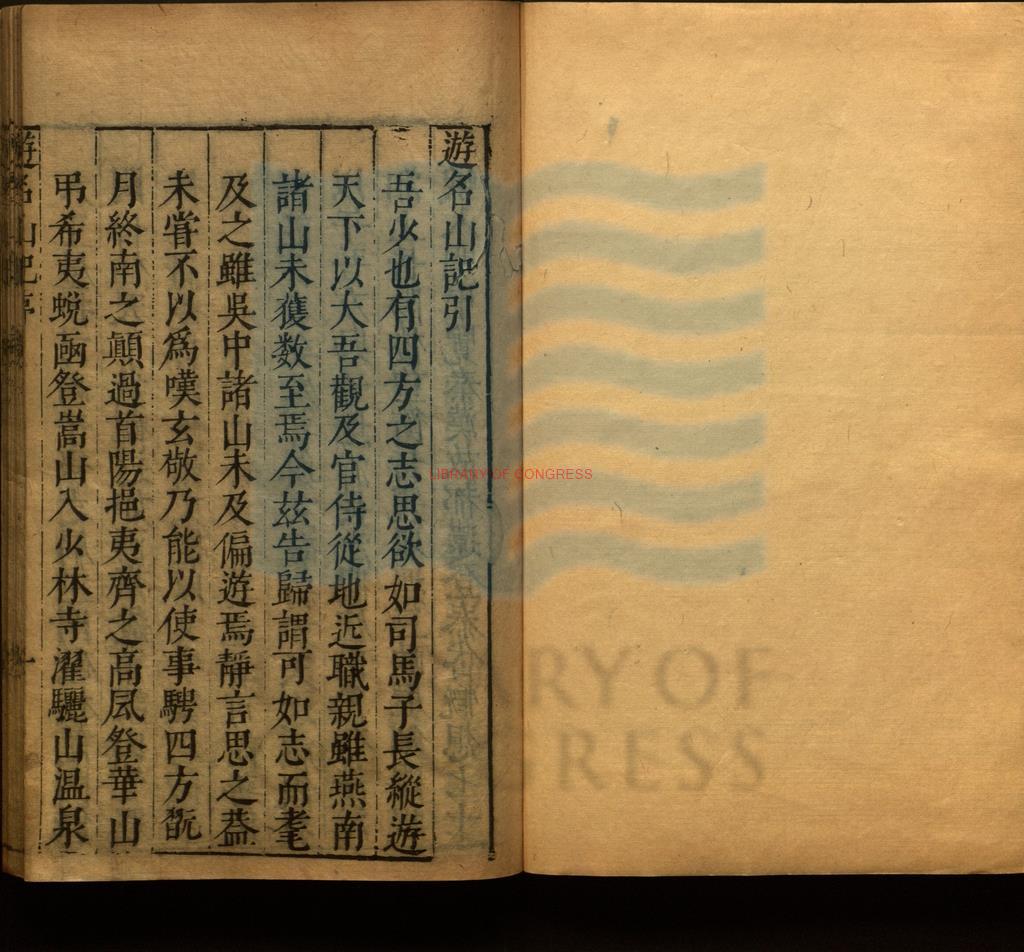 遊名山記引
吾少也有四方之志思欲如司馬子長縱遊
天下以大吾觀及官侍從地近職親雖燕南
諸山未獲数至焉今兹告歸謂可如志而耄
及之雖吳中諸山未及偏遊焉靜言思之葢
未甞不以為嘆玄敬乃能以使事騁四方翫
月終南之顛過首陽挹夷齊之高風登華山
弔希夷蛻凾登嵩山入少林寺濯驪山温泉
遊名山記
LIBRARY OF CONGRESS
RY OF
RESS